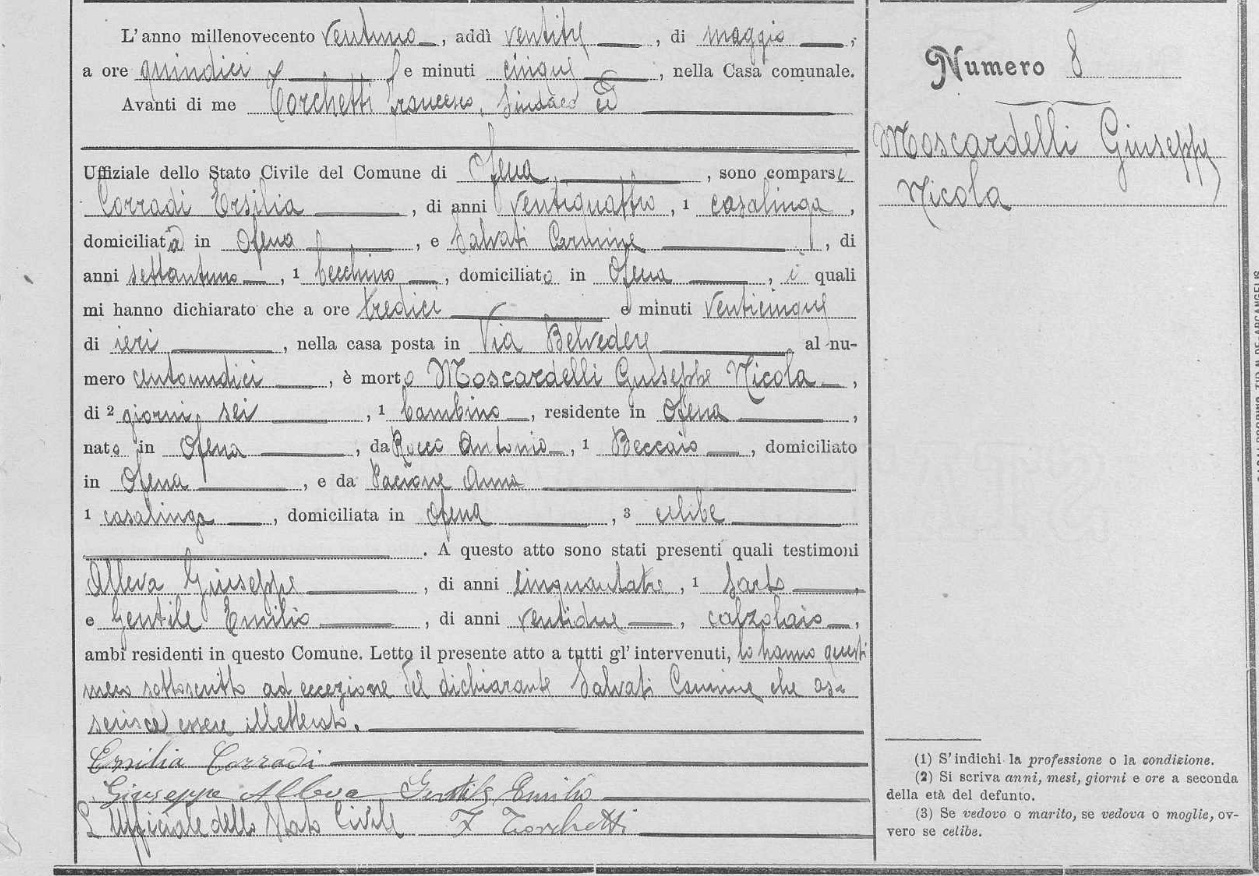 L'anno millenovecento ventuno, addì ventitre, di maggio,
a ore quindici e minuti cinque, nella Casa comunale.
Avanti di me Torchetti Francesco, Sindaco ed
Uffiziale dello Stato Civile del Comune di Ofena, sono comparsi
Corradi Ersilia, di anni ventiquattro, 1 casalinga,
domiciliata in Ofena, e Salvati Carmine, di
anni settantuno, 1 becchino, domiciliato in Ofena, i quali
mi hanno dichiarato che a ore tredici e minuti venticinque
di ieri, nella casa posta in Via Belvedere al nu-
mero centoundici, è morto Moscardelli Giuseppe Nicola,
di 2 giorni sei, 1 bambino, residente in Ofena,
nato in Ofena, da Rocco Antonio, 1 Beccaio, domiciliato
in Ofena, e da Anna
1 casalinga, domiciliata in Ofena, 3 celibe
. A questo atto sono stati presenti quali testimoni
Alleva Giuseppe, di anni cinquantatre, 1 sarto
e Gentile Emilio, di anni ventidue, calzolaio,
ambi residenti in questo Comune. Letto il presente atto a tutti gl' intervenuti, lo hanno questi
meco sottoscritto ad eccezione del dichiarante Salvati Carmine che as-
serisce essere illetterato.
Ersilia Corradi
Giuseppe Alleva Gentile Emilio
L'Uffiziale dello Stato Civile F Torchetti
Numero 8
Moscardelli Giuseppe
Nicola
(1) S'indichi la professione o la condizione.
(2) Si scriva anni, mesi, giorni e ore a seconda
della età del defunto.
(3) Se vedovo o marito, se vedova o moglie, ov-
vero se celibe.